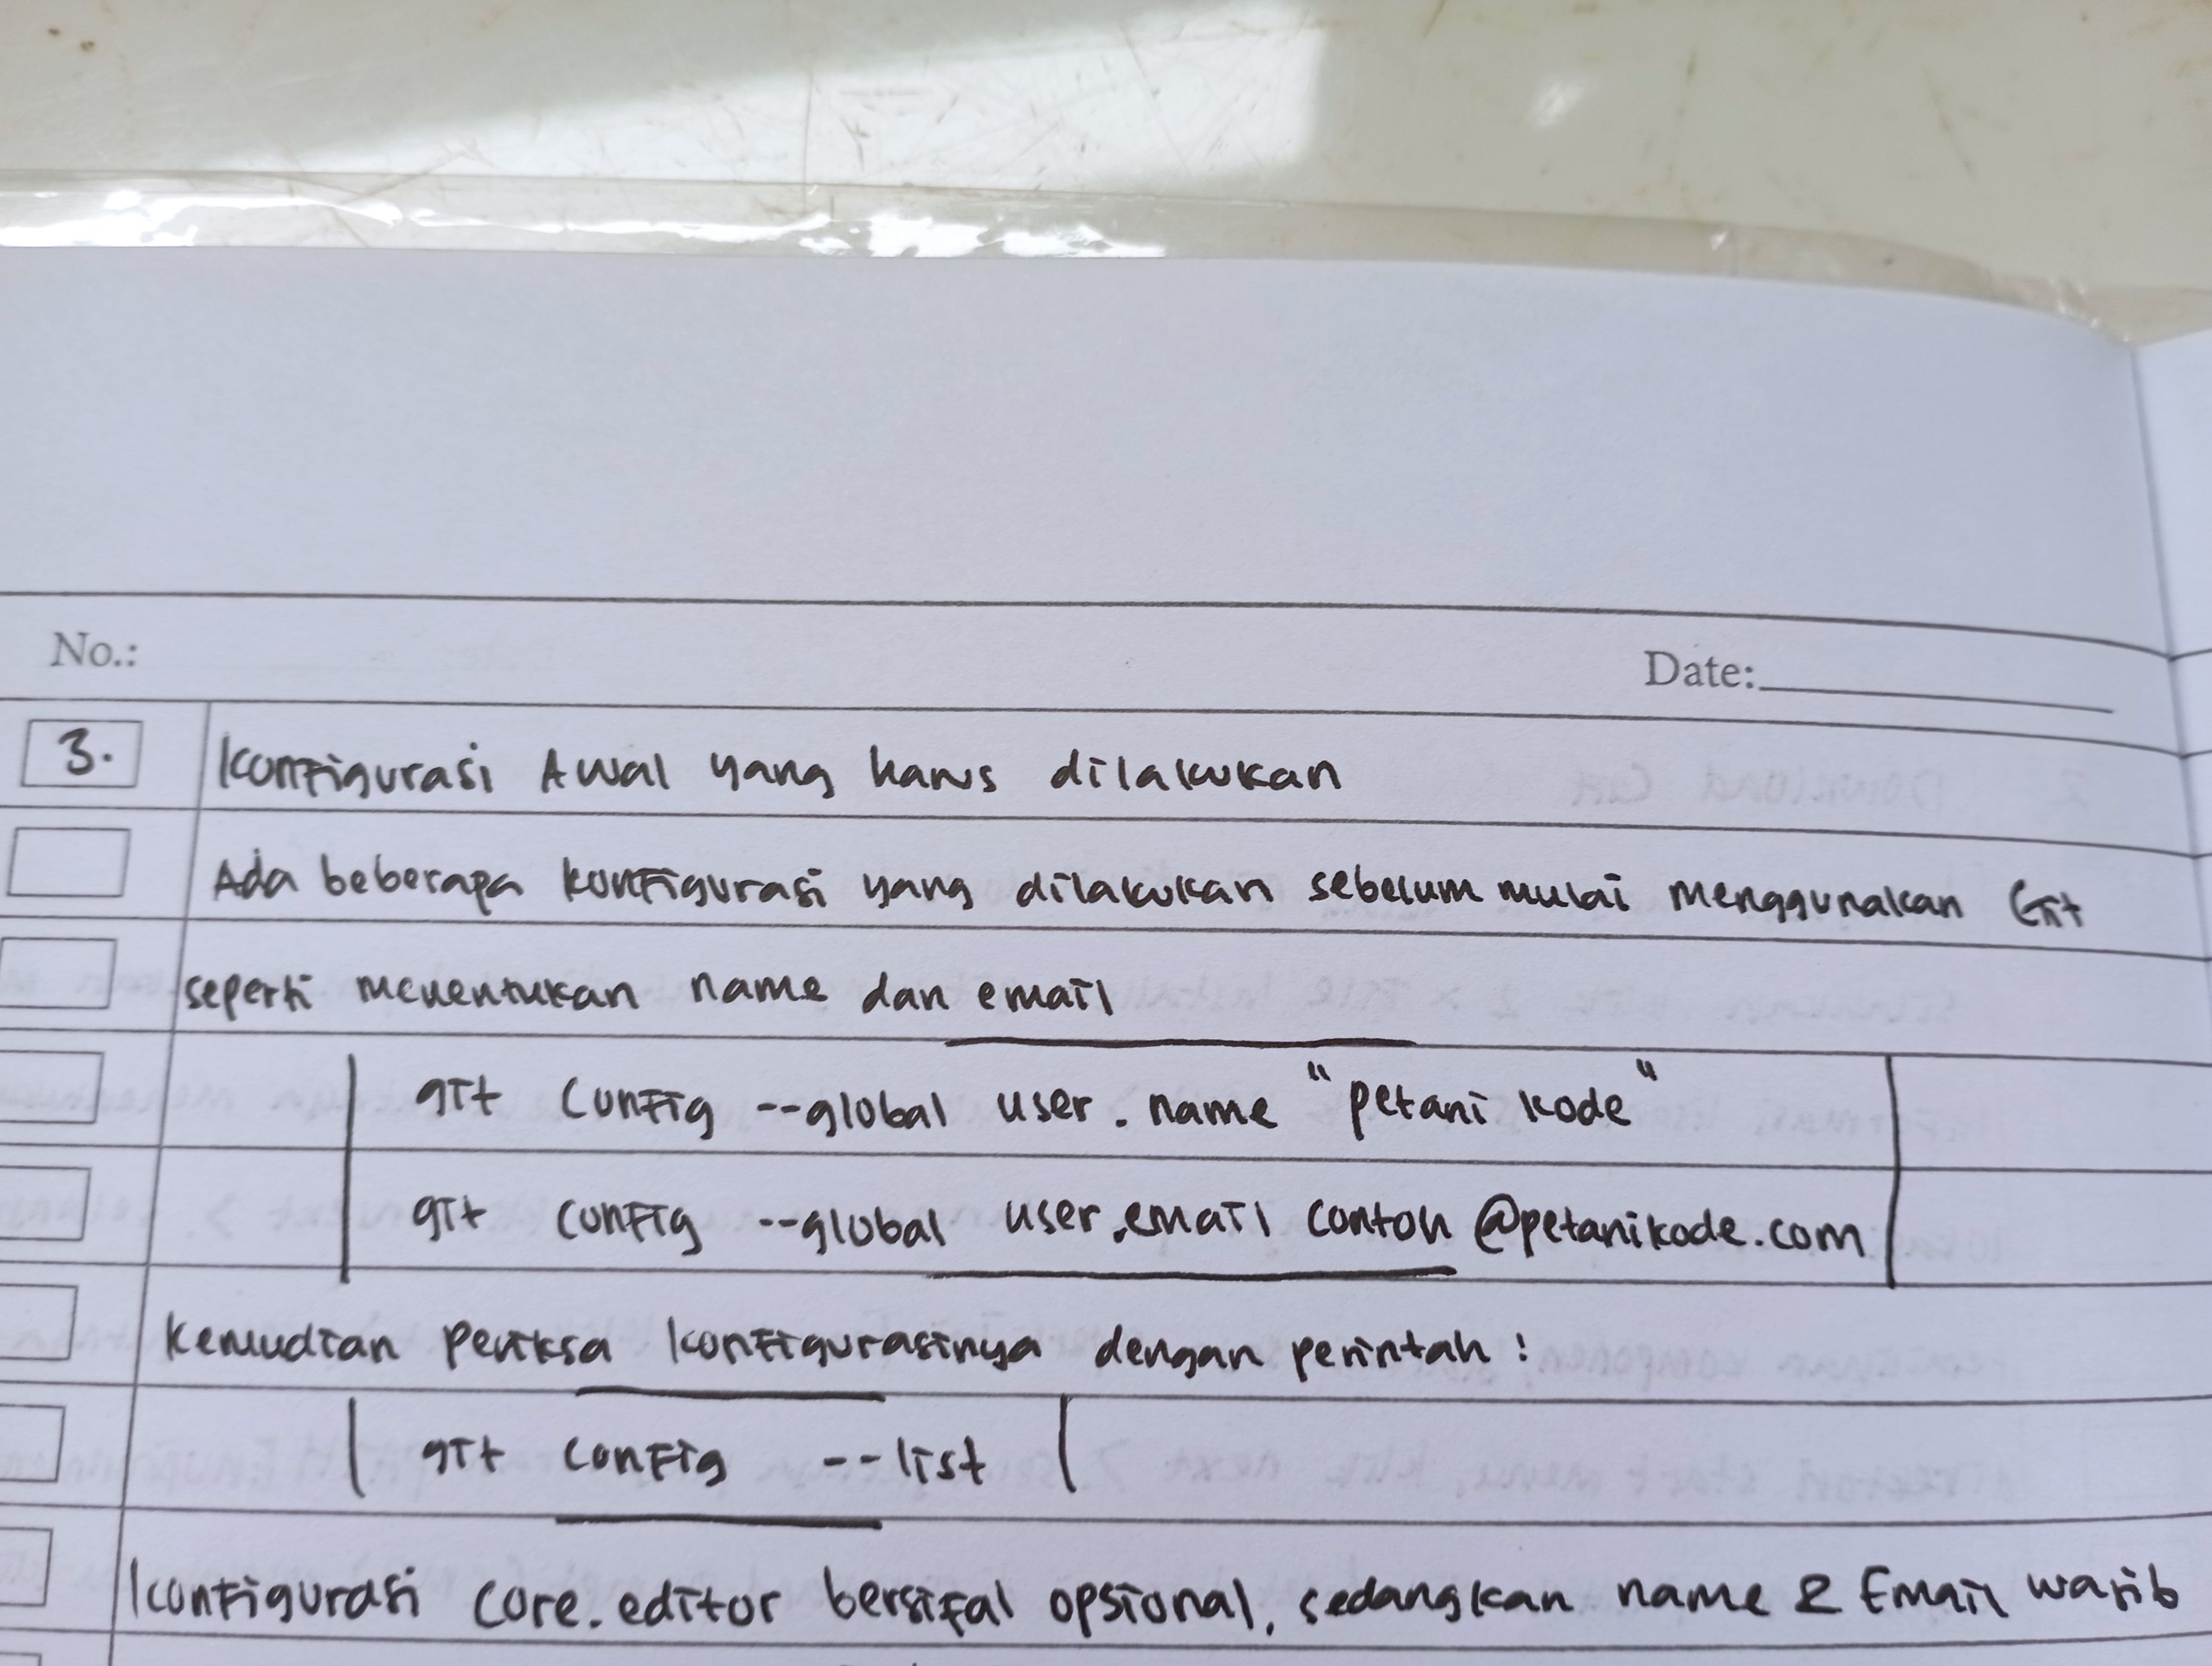 No.:
Date:
3. Konfigurasi Awal yang harus dilakukan
Ada beberapa konfigurasi yang dilakukan sebelum mulai menggunakan Git
seperti menentukan name dan email
git config --global user.name "petani kode"
git config --global user.email contoh@petanikode.com
Kemudian periksa konfigurasinya dengan perintah :
git config --list
Konfigurasi core.editor bersifat opsional, sedangkan name & Email wajib